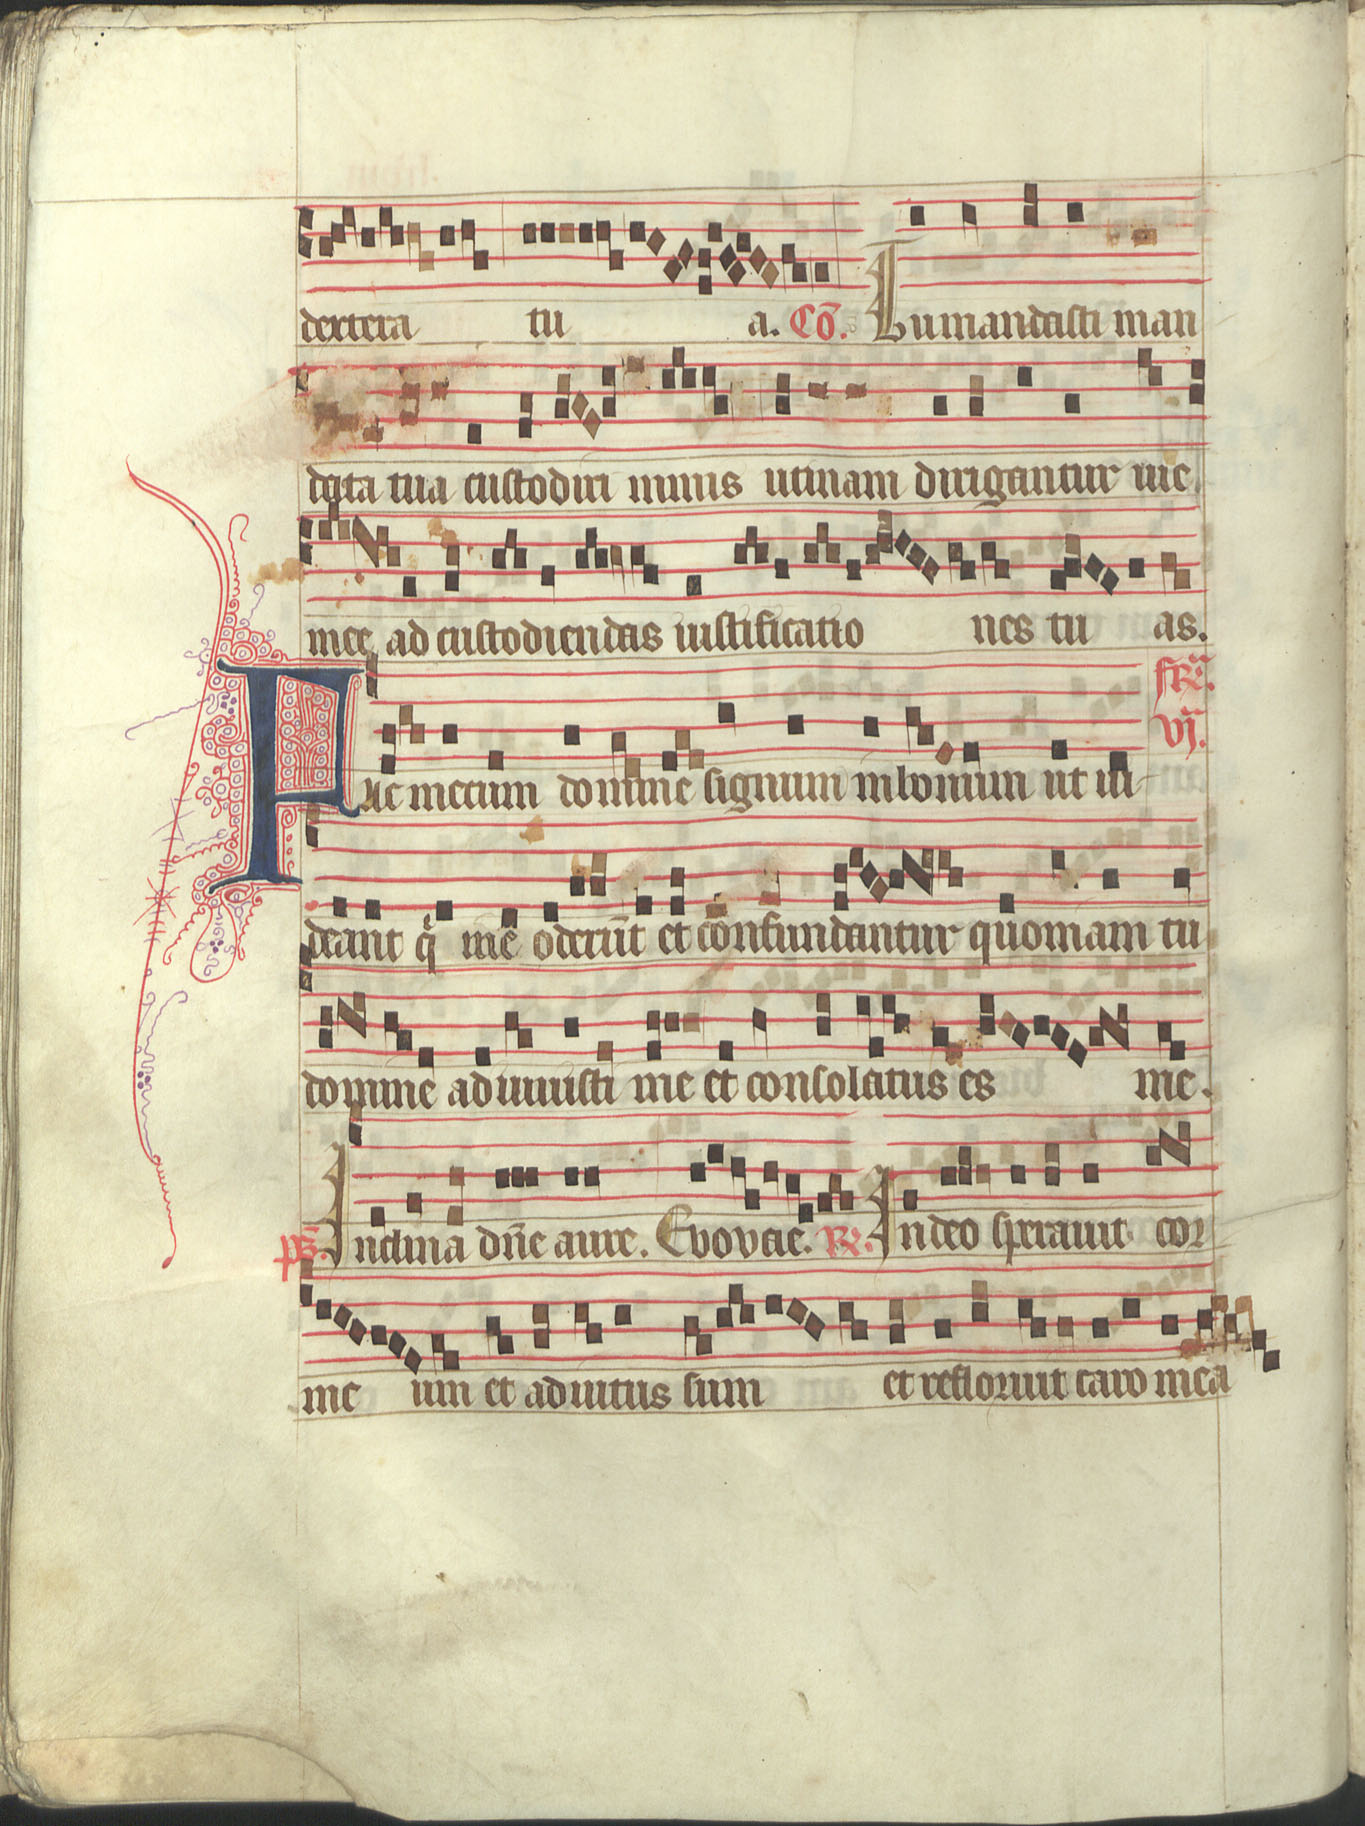 dextera tu a. Cō. Tu mandasti man
data tua custodiri nimis utinam dirigantur uie
mee ad custodiendas iustificatio nes tu as.
fR̃a
vj.
Fac mecum domine signum in bonum ut ui
deant q̇ me oderūt et confundantur quoniam tu
domine adiuuisti me et consolatus es me.
ps. Inclina dñe aure. Evovae. R. In deo sperauit cor
me um et adiutus sum et refloruit caro mea